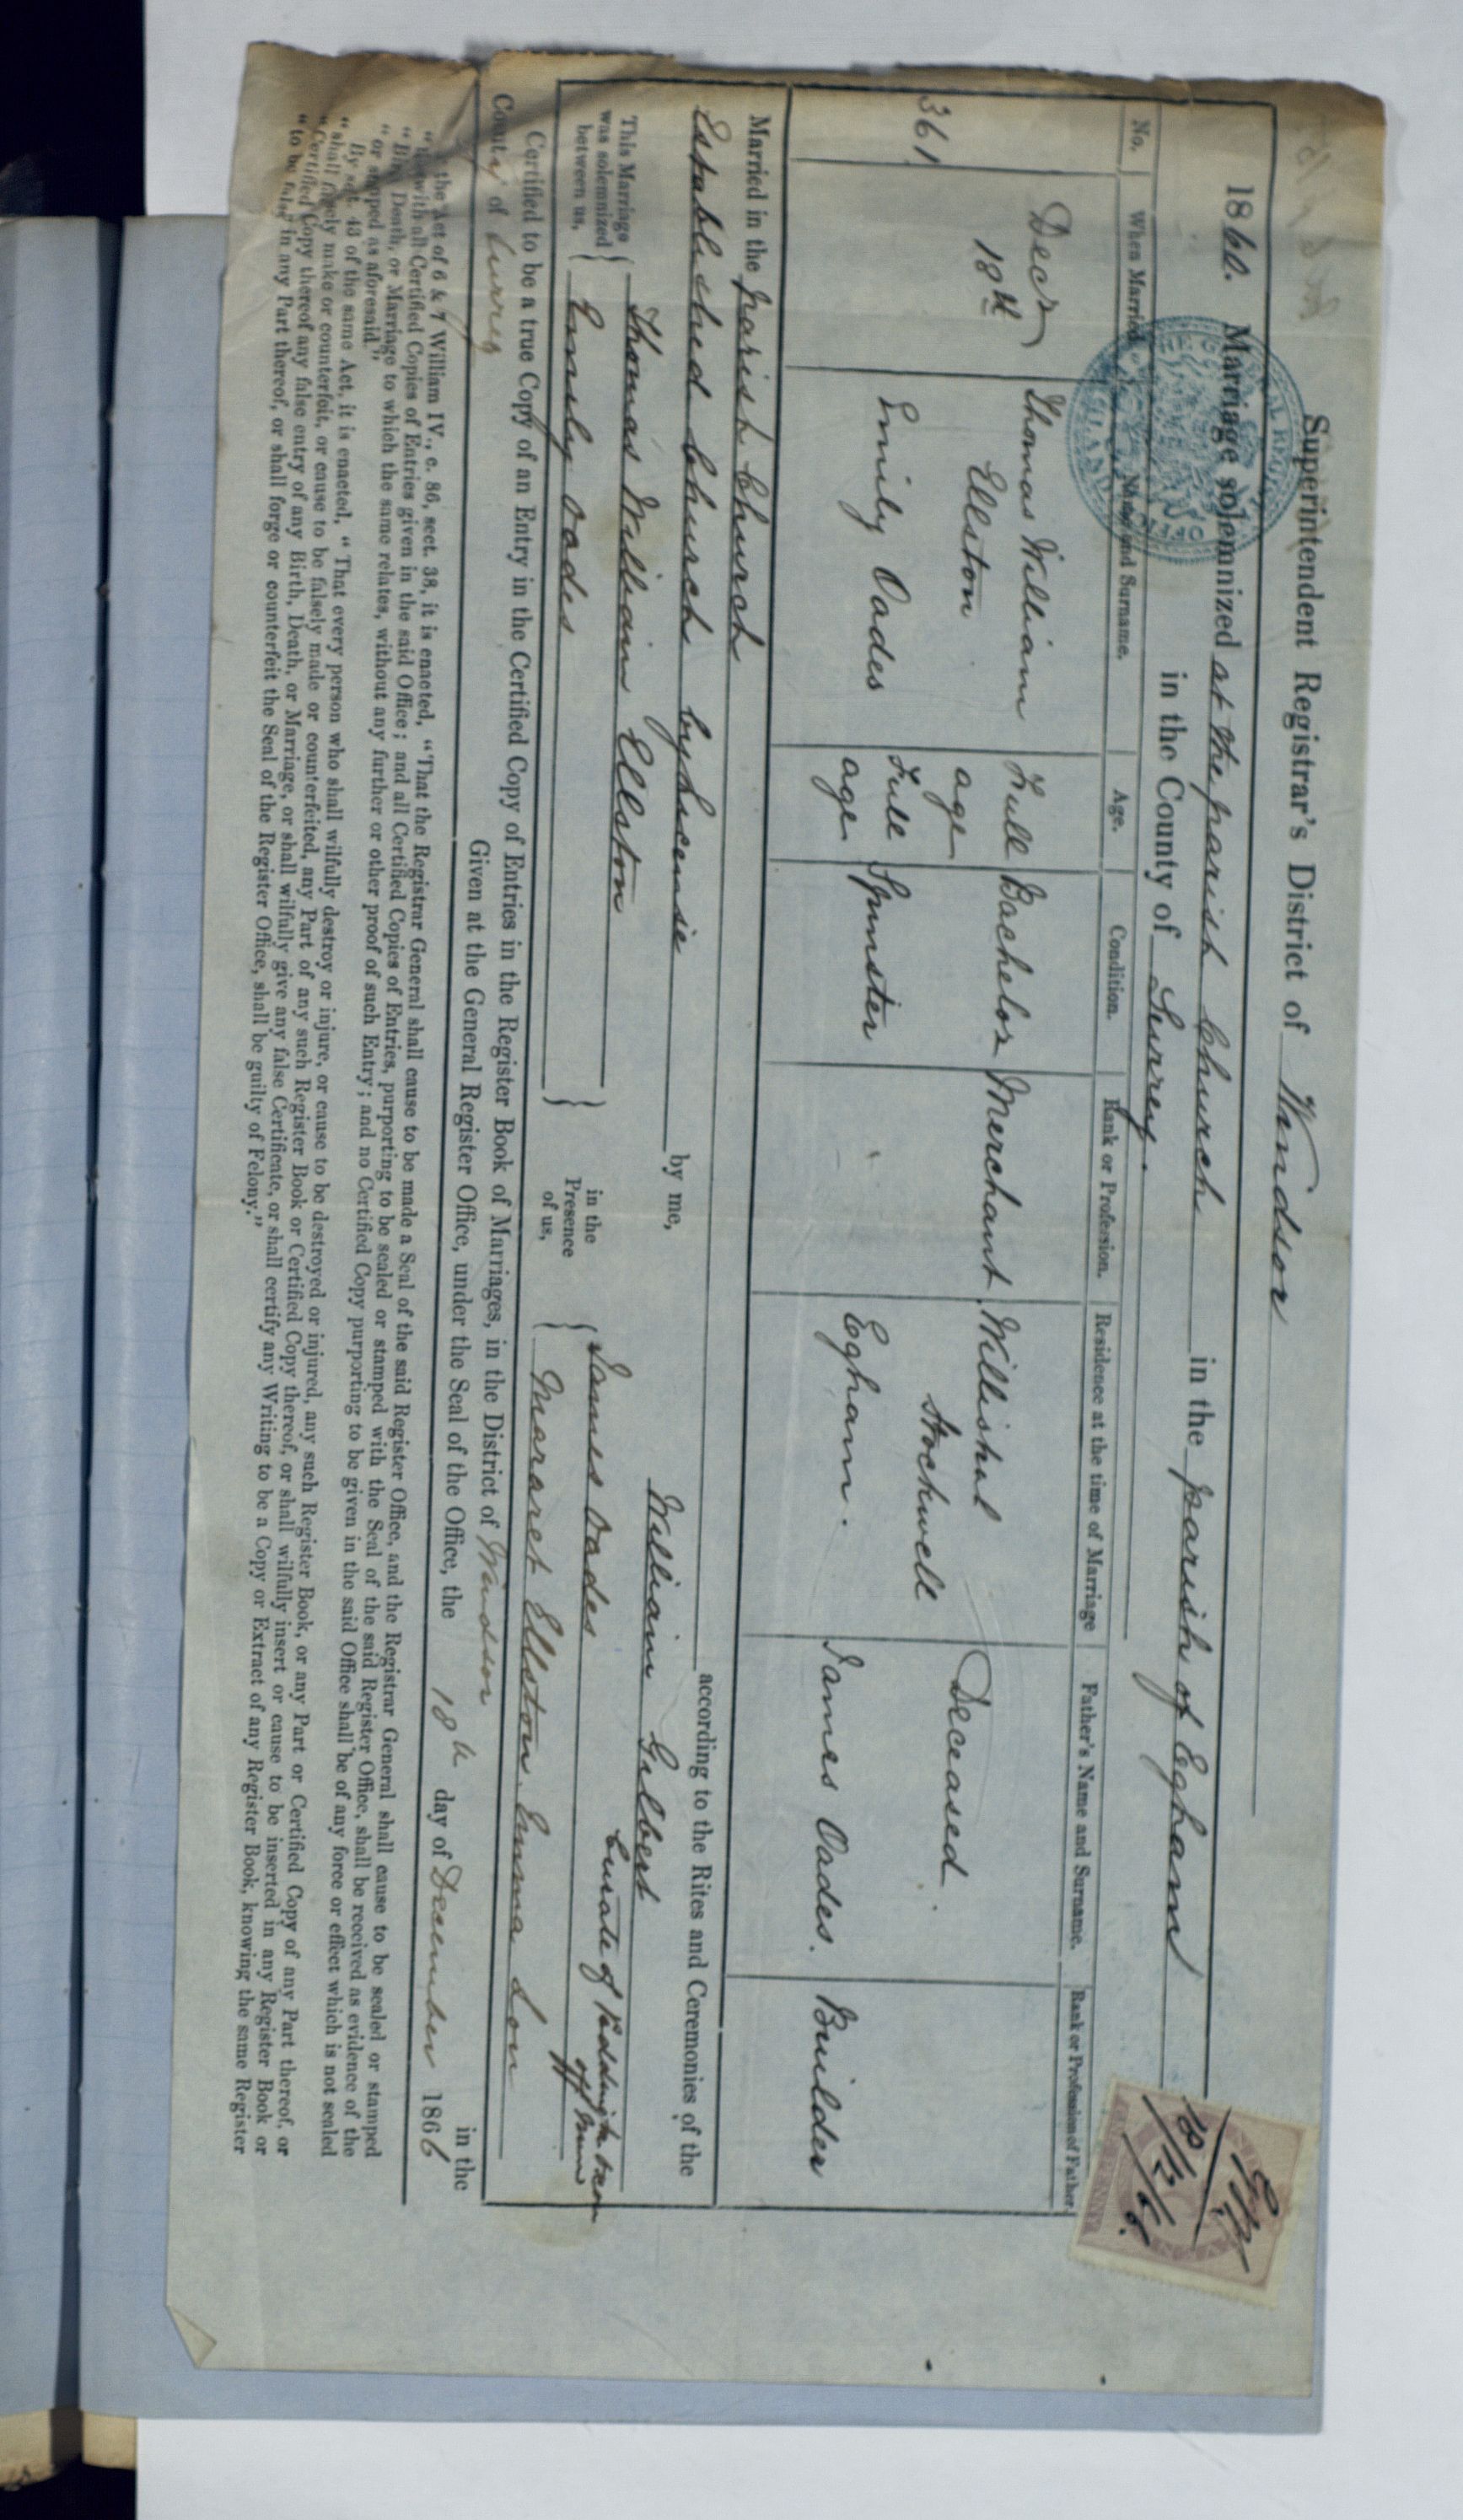 Superintendent Registrar's District of Windsor
1860. Marriage solemnized at the parish Church in the parish of Egham
in the County of Surrey.
No. When Married. Name and Surname. Age. Condition. Rank or Profession. Residence at the time of Marriage Father's Name and Surname. Rank or Profession of Father.
361 Decr 18th Thomas William Ellston Full age Bachelor Merchant Stockwell Deceased
Emily Oades Full age Spinster Egham. James Oades. Builder
Married in the parish Church according to the Rites and Ceremonies of the
Established Church by License by me, William Gilbert
Curate of
This Marriage was solemnized between us, { Thomas William Ellston } in the Presence of us, { James Oades
Emily Oades Mararet Ellston. Emma
Certified to be a true Copy of an Entry in the Certified Copy of Entries in the Register Book of Marriages, in the District of Windsor in the
County of Surrey
Given at the General Register Office, under the Seal of the Office, the 18th day of December 1866
the Act of 6 & 7 William IV., c. 86, sect. 38, it is enacted, "That the Registrar General shall cause to be made a Seal of the said Register Office, and the Registrar General shall cause to be sealed or stamped
" therewith all Certified Copies of Entries given in the said Office; and all Certified Copies of Entries, purporting to be sealed or stamped with the Seal of the said Register Office, shall be received as evidence of the
" Birth, Death, or Marriage to which the same relates, without any further or other proof of such Entry; and no Certified Copy purporting to be given in the said Office shall be of any force or effect which is not sealed
" or stamped as aforesaid."
By sect. 43 of the same Act, it is enacted, "That every person who shall wilfully destroy or injure, or cause to be destroyed or injured, any such Register Book, or any Part or Certified Copy of any Part thereof, or
" shall falsely make or counterfeit, or cause to be falsely made or counterfeited, any Part of any such Register Book or Certified Copy thereof, or shall wilfully insert or cause to be inserted in any Register Book or
" Certified Copy thereof any false entry of any Birth, Death, or Marriage, or shall wilfully give any false Certificate, or shall certify any Writing to be a Copy or Extract of any Register Book, knowing the same Register
" to be false in any Part thereof, or shall forge or counterfeit the Seal of the Register Office, shall be guilty of Felony."
18/12/66.